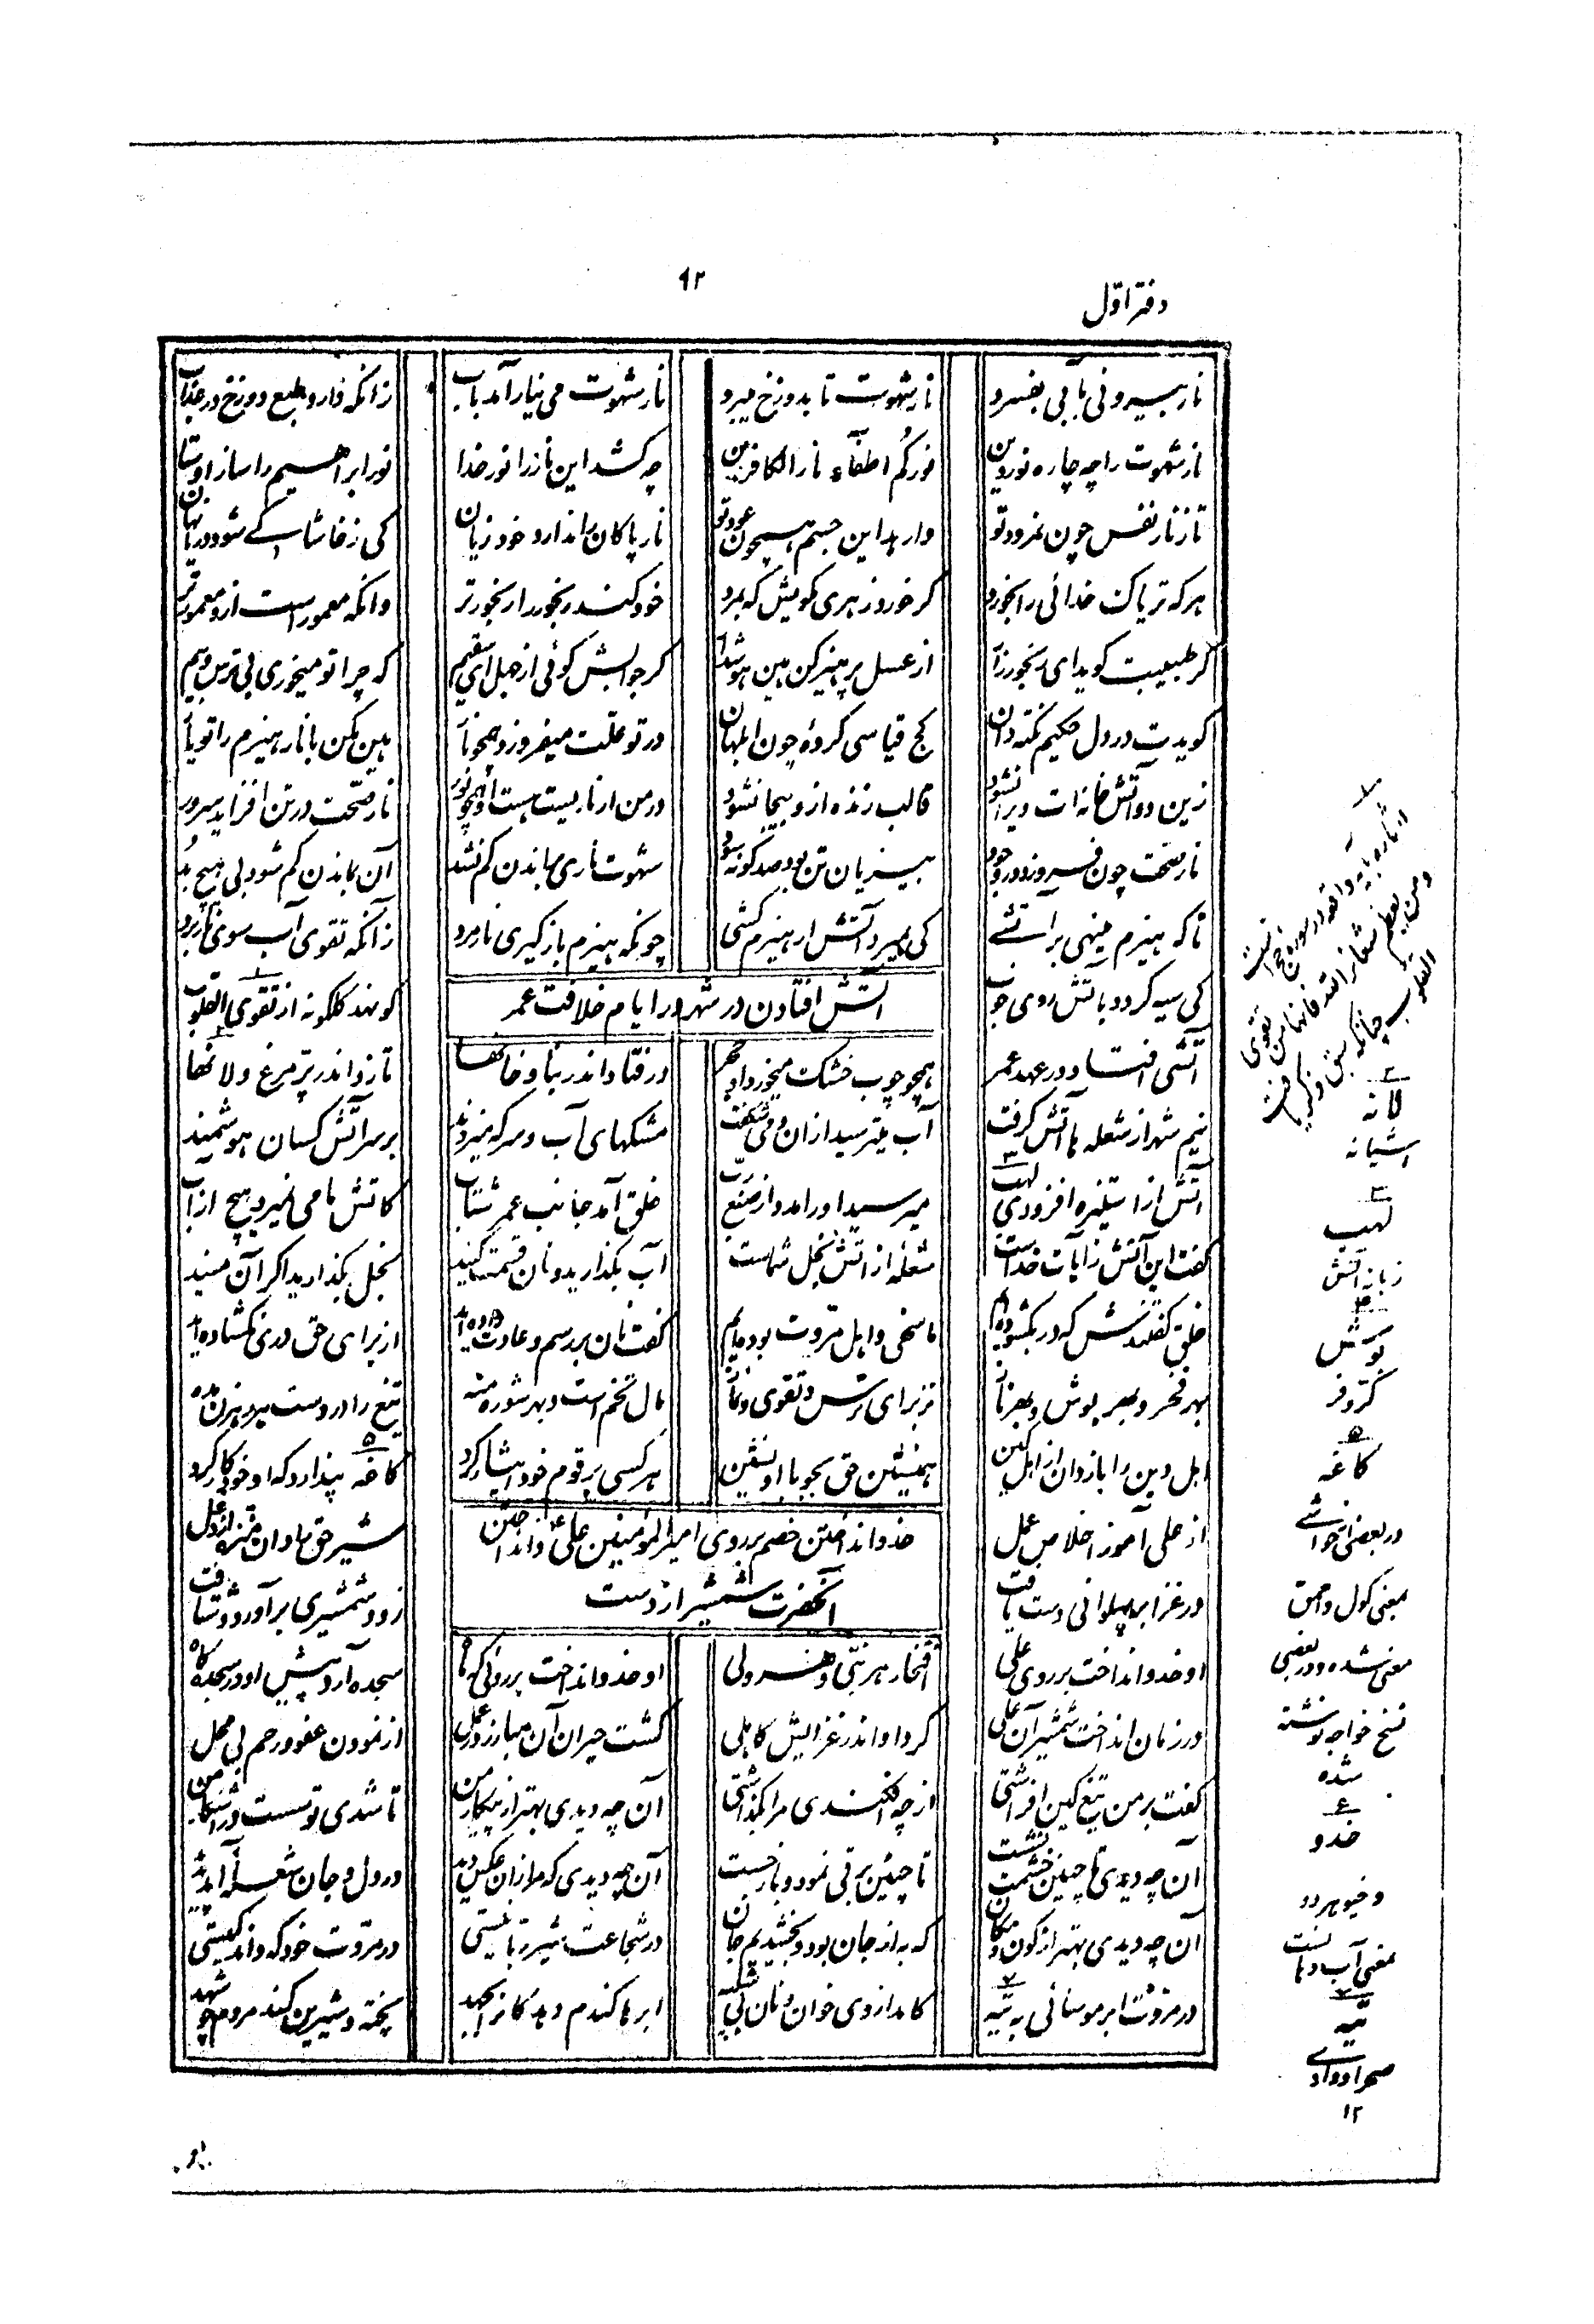 ۹۲
دفتر اوّل
نار بیرونی بآبی بفسرد نار شهوت تا بدوزخ میبرد نار شهوت می نیارامد بآب زانکه دارد طبع دوزخ در عذاب
نار شهوت را چه چاره نور دین نورکُم اطفآء نار الکافرین چه کشد این نار را نور خدا نور ابراهیم را ساز اوستا
تا ز نار نفس چون نمرود تو وارهد این جسم همچون عود تو نار پاکان را ندارد خود زیان کی ز خاشاک شود دریا نهان
هر که تریاک خدائی را بخورد گر خورد زهری مگویش که بمرد خود کند رنجور را رنجورتر وانکه معمور است ازو معمورتر
گر طبیبت گوید ای رنجور زار از عسل پرهیز کن هین هوش دار گر جوابش گوئی از جهل ای سقیم که چرا تو میخوری بی ترس و بیم
گویدت در دل حکیم نکته دان کج قیاسی کردۀ چون ابلهان در تو علّت میفروزد همچو نار هین مکن با نار هیزم را تو یار
زین دو آتش خانه‌ات ویران شود قالب زنده ازو بیجان شود در من ار ناریست هست او همچو نور نار صحّت در تن افزاید سرور
نار صحّت چون فروزد در وجود بی زیان تن بود صد گونه سود شهوت ناری براندن کم نشد آن بماندن کم شود بی هیچ بُد
تا که هیزم مینهی بر آتشے کی بمیرد آتش از هیزم کشی چونکه هیزم بازگیری نار مرد زآنکه تقوی آب سوی نار برد
کی سیه گردد بآتش روی خوب کو نهد گلگونه از تقوی القلوب
آتش افتادن در شهر در ایام خلافت عمر
آتشی افتاد در عهد عمر همچو چوب خشک میخورد او حجر در فتاد اندر بنا و خانها تا زد اندر پر مرغ و لانها
نیم شهر از شعله ها آتش گرفت آب میترسید ازان و می شکفت مشکهای آب و سرکه میزدند بر سر آتش کسان هوشمند
آتش از استیزه افزودی لهب میرسید او را مدد از صنع ربّ خلق آمد جانب عمر شتاب کاتش ما می نمیرد هیچ از آب
گفت این آتش ز آیات خداست شعلۀ از آتش بخل شماست آب بگذارید و نان قسمت کنید بخل بگذارید اگر آن منید
خلق گفتندش که در بگشوده‌ایم ما سخی و اهل مروّت بوده‌ایم گفت نان بر رسم و عادت داده‌اید از برای حق دری نگشاده‌اید
بهر فخر و بهر بوش و بهر ناز نز برای ترس و تقوی و نیاز مال تخم است و بهر شوره منه تیغ را در دست هر رهزن مده
اهل دین را باز دان از اهل کین همنشین حق بجو با او نشین هر کسی بر قوم خود ایثار کرد کاغه پندارد که او خود کار کرد
از علی آموز اخلاص عمل شیر حق را دان منزّه از دغل
خدو انداختن خصم بر روی امیر المؤمنین علی ع و انداختن
آنحضرت شمشیر از دست
در غزا بر پهلوانی دست یافت زود شمشیری بر آورد و شتافت
او خدو انداخت بر روی علی افتخار هر نبّی و هر ولی او خدو انداخت بر روئی که ماه سجده آرد پیش او در سجده گاه
در زمان انداخت شمشیر آن علی کرد او اندر غزایش کاهلی گشت حیران آن مبارز زین عمل از نمودن عفو و رحم بی محل
گفت بر من تیغ کین افراشتی از چه افگندی مرا بگذاشتی آن چه دیدی بهتر از پیکار من تا شدی تو سست در اشکار من
آن چه دیدی تا چنین خشمت نشست تا چنین برقی نمود و باز جست آن چه دیدی که مرا زان عکس دید در دل و جان شعلۀ آمد پدید
آن چه دیدی بهتر از کون و مکان که به از جان بود و بخشیدیم جان در شجاعت شیر ربانیستی در مروّت خود که داند کیستی
در مروّت ابر موسائی به تیه کامد از وی خوان و نان بی شبیه ابرها گندم دهد کانرا بجهد پخته و شیرین کند مردم چو شهد
۱
اشاره بآیه واقعه در سوره حج است
ومن یعظم شعائر الله فانها من تقوی
القلوب چنانکه سبق ذکر یافت
۲
لانه
آشیانه
۳
لهب
زبانه آتش
۴
بوش
کرّ و فر
۵
کاغه
در بعضی حواشے
بمعنی کول و احمق
معنی شده و در بعضی
نسخ خواجه نوشته
شده
۶
خدو
و خیو هر دو
بمعنی آب دهانست
۷
تیه
صحرا و وادے
۱۲